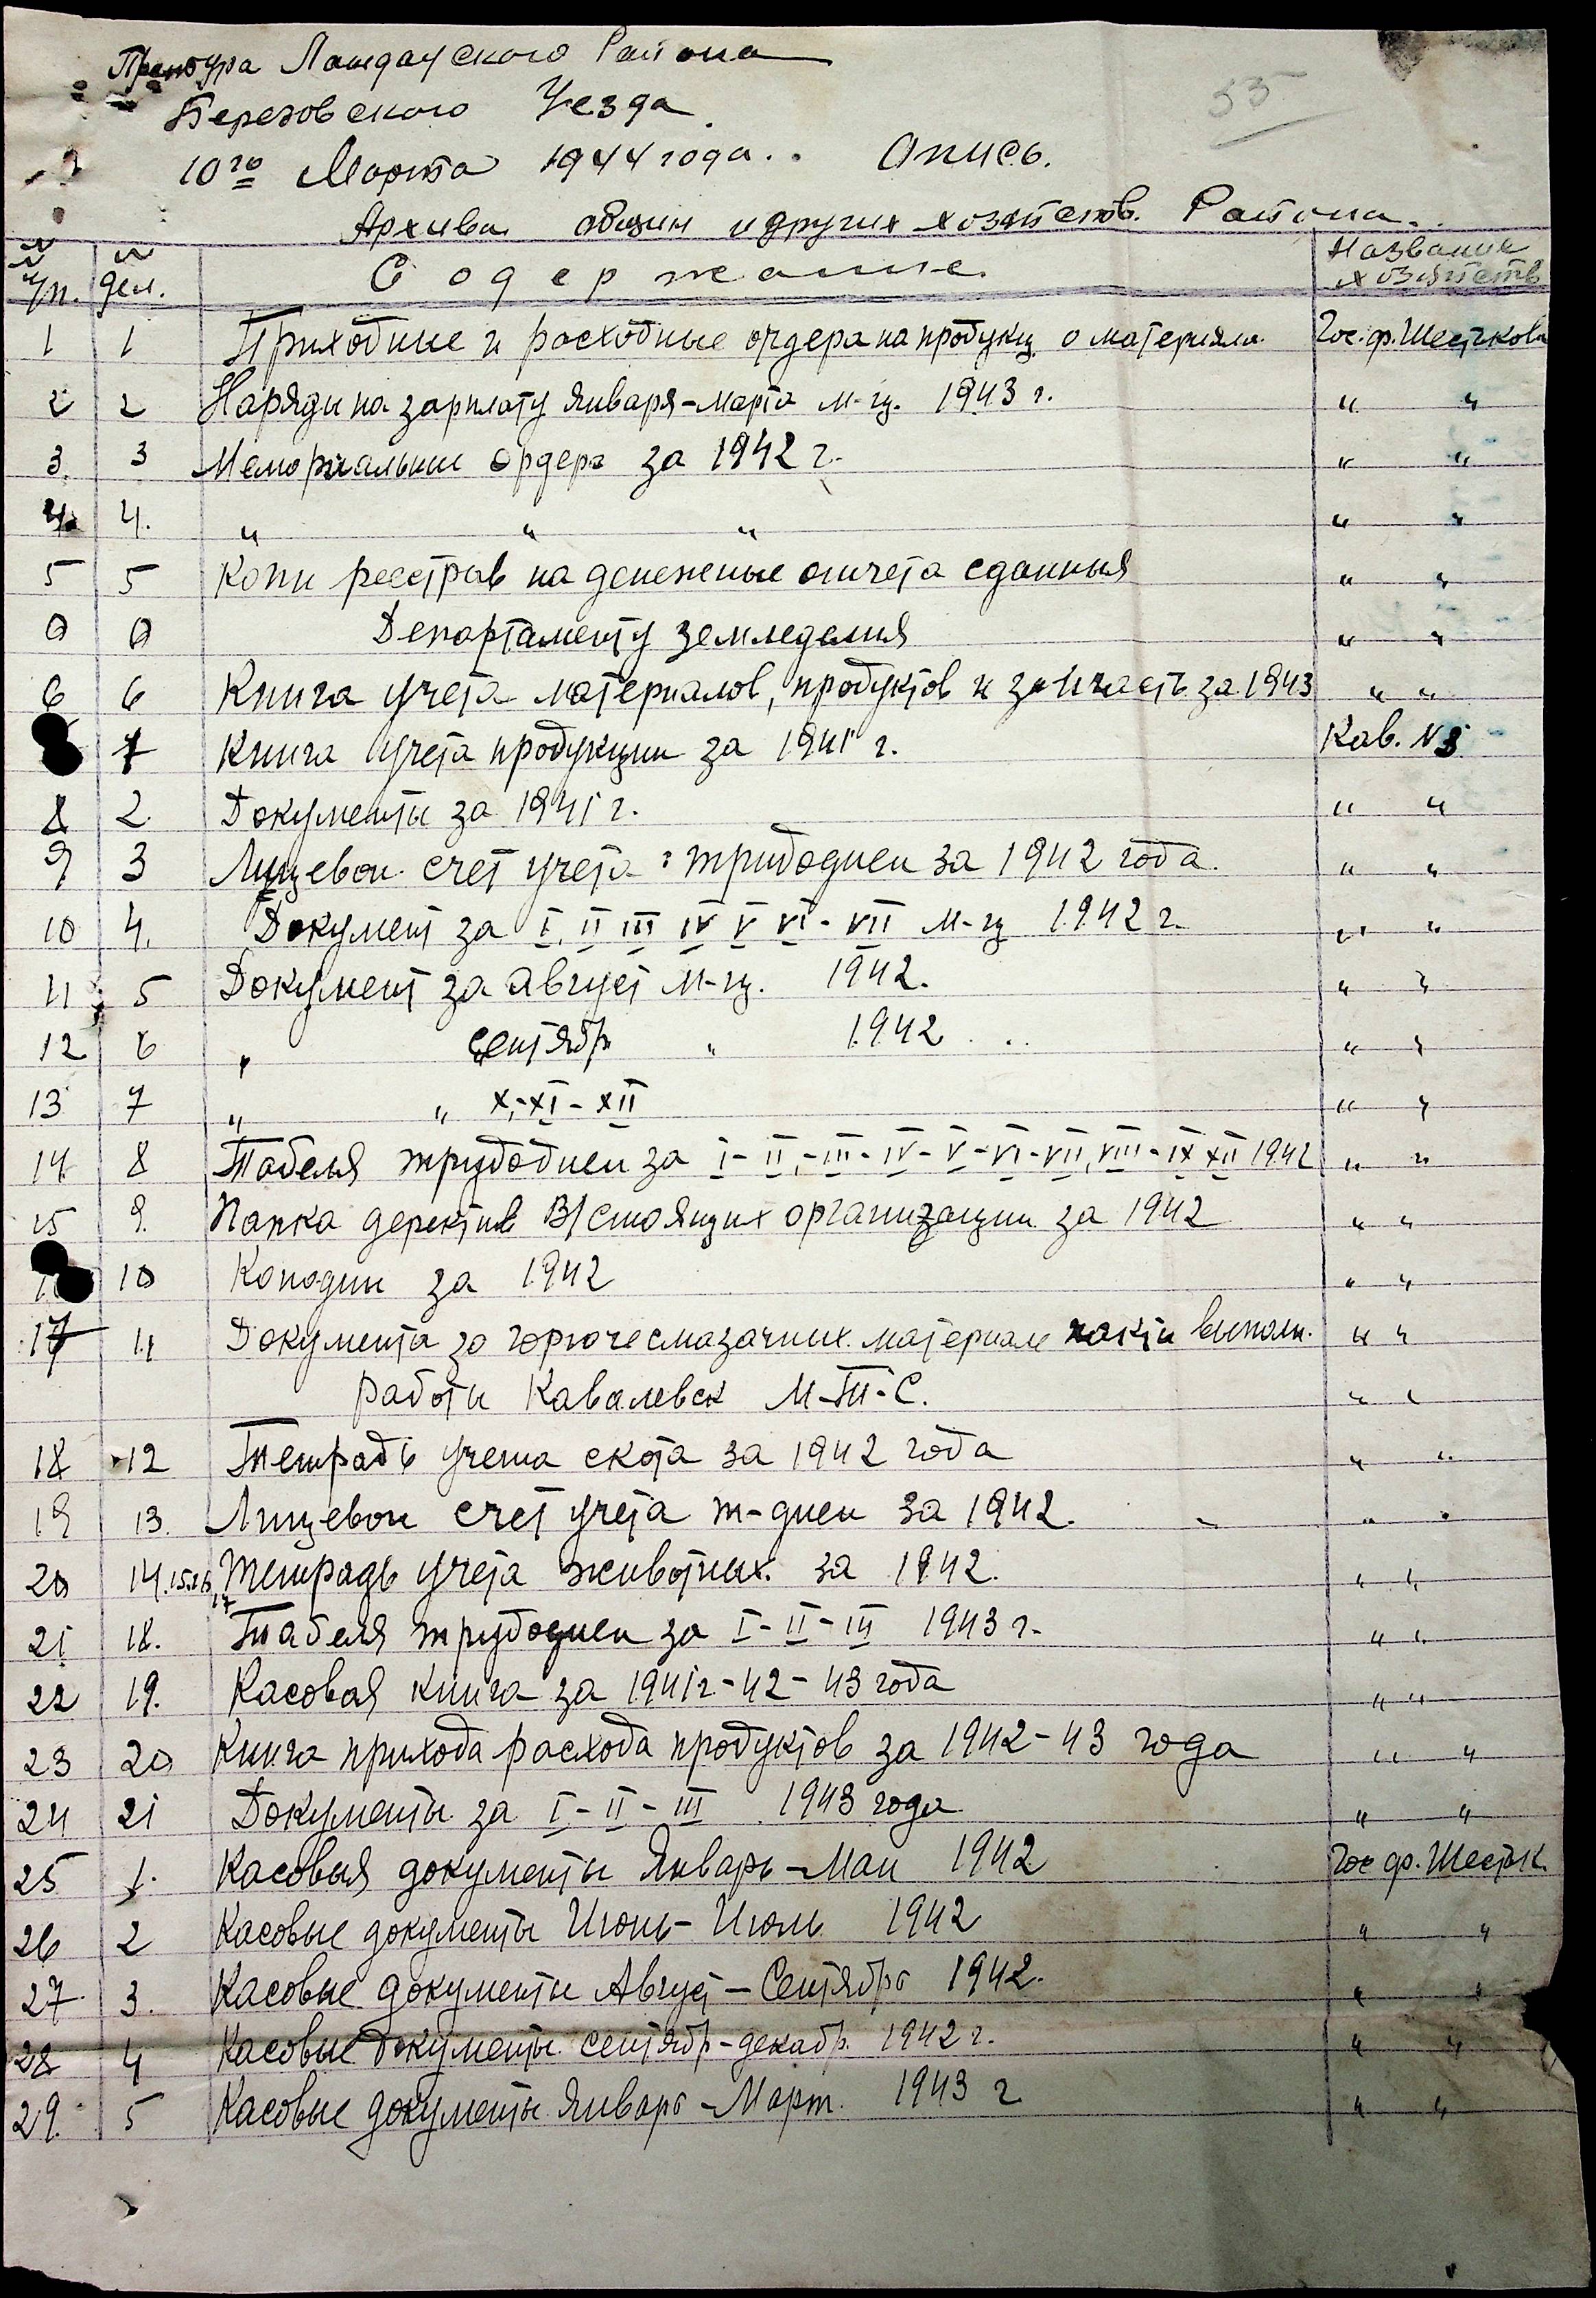 Претура Ландауского Района
Березовского Уезда
10го Марта 1944 года.. Опись.
55
Архива общин и других хозяйств. Района.
№ № п/п. № дел. Содержание. Название хозяйств
1 1 Приходные и расходные ордера на продукц. о материала. Гос. ф. Шесткова
2 2 Наряды на зарплату Января-Марта м-ц. 1943 г. " "
3. 3 Мемориальные ордера за 1942 г. " "
4 4. " " " " "
5 5 Копи реестрав на денежные отчета сданныя " "
0 0 Департаменту земледелия " "
6 6 Книга учета материалов, продуктов и запчасть за 1943 " "
7 Книга учета продукции за 1941 г. Кав. N 3
8 2. Документы за 1941 г. " "
9 3 Лицевои счет учета трудоднеи за 1942 года. " "
10 4. Документ за I, II III IV V VI - VII м-ц 1942 г. " "
11 5 Документ за август м-ц. 1942. " "
12 6 " сентябр " 1942 " "
13 7 " " X,-XI-XII " "
14 8 Табеля трудоднеи за I-II,-III-IV-V-VI-VII,VIII-IX XII 1942 " "
15 9. Папка деректив В/стоящих организации за 1942 " "
10 Коподии за 1942 " "
17 11 Документа за горючесмазачных материале накти выполн. " "
работы Кавалевск М-Т-С. " "
18 12 Тетрадь учета скота за 1942 года " "
19 13. Лицевои счет учета т-днеи за 1942. " "
20 14.15.16 17 Тетрадь учета животных. за 1942. " "
21 18. Табеля трудоднеи за I-II-III 1943 г. " "
22 19. Касовая книга за 1941г-42-43 года " "
23 20 Книга прихода расхода продуктов за 1942-43 года " "
24 21 Документы за I-II-III 1943 года " "
25 1. Касовыя документы Январь-Маи 1942 Гос ф. Шестк.
26 2 Касовые документы Июнь-Июль 1942 " "
27 3. Касовые документы Август-Сентябрь 1942. " "
28 4 Касовые документы сентябр-декабр. 1942 г. " "
29. 5 Касовые документы Январь-Март. 1943 г " "